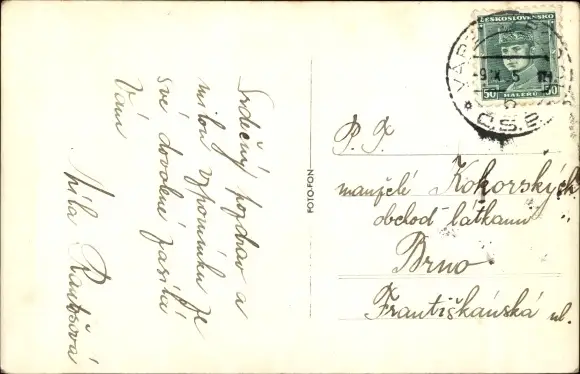 Srdečný pozdrav a
milou vzpomínku ze
své dovolené zasílá
Vám
Míla
FOTOFON
ČESKOSLOVENSKO
50 HALÉŘŮ 50
Č.S.
P. T.
manželé Kokorských
obchod látkami
Brno
Františkánská ul.